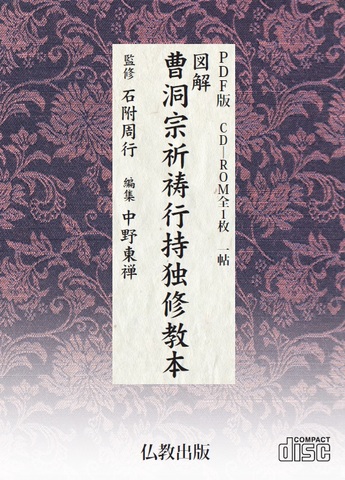 PDF版 CD-ROM全1枚 一帖
図解
曹洞宗祈祷行持独修教本
監修 石附周行 編集 中野東禅
仏教出版
COMPACT
disc